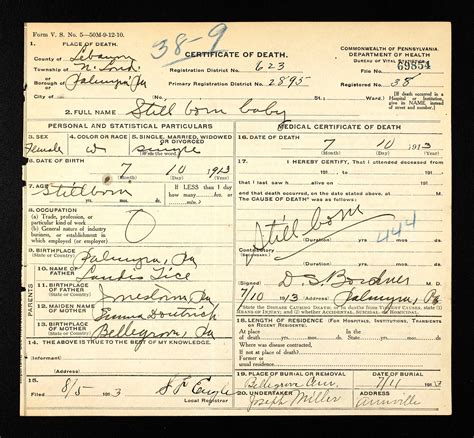 Form V. S. No. 5—50M-9-12-10.
38-9
1. PLACE OF DEATH.
County of Lebanon
Township of N. Lond
or
Borough of Palmyra Pa
CERTIFICATE OF DEATH.
Registration District No. 623
Primary Registration District No. 2895
COMMONWEALTH OF PENNSYLVANIA
DEPARTMENT OF HEALTH
BUREAU OF VITAL STATISTICS
File No. 69854
Registered No. 38
2. FULL NAME Still born baby
PERSONAL AND STATISTICAL PARTICULARS
3. SEX
Female
4. COLOR OR RACE
W
5. SINGLE, MARRIED, WIDOWED
OR DIVORCED
single
6. DATE OF BIRTH
7 10 1913
7. AGE
Stillborn
IF LESS than 1 day
how many
yrs. mos. ds.
8. OCCUPATION
(a) Trade, profession, or
particular kind of work
(b) General nature of industry,
business, or establishment in
which employed (or employer)
9. BIRTHPLACE
(State or Country)
Palmyra, Pa
PARENTS
10. NAME OF
FATHER
Landis Tice
11. BIRTHPLACE
OF FATHER
(State or Country)
Jonestown, Pa
12. MAIDEN NAME
OF MOTHER
Emma Doutrich
13. BIRTHPLACE
OF MOTHER
(State or Country)
Bellegrove, Pa
14. THE ABOVE IS TRUE TO THE BEST OF MY KNOWLEDGE.
(Informant)
(Address)
15.
Filed 8/5 1913
Local Registrar
MEDICAL CERTIFICATE OF DEATH
16. DATE OF DEATH
7 10 1913
17. I HEREBY CERTIFY, That I attended deceased
from 191 , to 191
that I last saw h alive on 191
and that death occurred, on the date stated above, at M.
The CAUSE OF DEATH* was as follows:
Still born
444
(Duration) yrs. mos. ds.
Contributory
(Duration) yrs. mos. ds.
(Signed) D. S. Bordner M. D.
7/10 1913 (Address) Palmyra, Pa
18. LENGTH OF RESIDENCE (For Hospitals, Institutions, Transients
or Recent Residents)
Where was disease contracted,
if not at place of death?
Former or
usual residence
19. PLACE OF BURIAL OR REMOVAL
Bellegrove
DATE OF BURIAL
7/11 1913
20. UNDERTAKER
Joseph Miller
ADDRESS
Annville